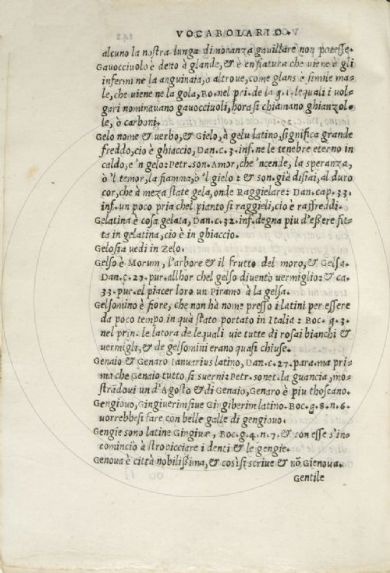 VOCABOLARIO.
alcuno la nostra lunga dimoranza gauillare non potesse.
Gauocciuolo è detto à glande, & è enfiatura che uiene à gli
infermi ne la anguinaia, o altroue, come glans è simile ma-
le, che uiene ne la gola, Bo. nel pri. de la q. 1. le quali i uol-
gari nominauano gauocciuoli, hora si chiamano ghianzol-
le, ò carboni.
Gelo nome & uerbo, & Gielo, à gelu latino, significa grande
freddo, cio è ghiaccio, Dan. c. 3. inf. ne le tenebre eterno in
caldo, e 'n gelo: Petr. son. Amor, che 'ncende, la speranza,
ò 'l temor, la fiamma, ò 'l gielo: & son. già disiai, al duro
cor, che à meza state gela, onde Raggielare: Dan. cap. 33.
inf. un poco pria chel pianto si raggieli, cio è raffreddi.
Gelatina è cosa gelata, Dan. c. 32. inf. degna piu d'eßere fit-
ta in gelatina, cio è in ghiaccio.
Gelosia uedi in Zelo.
Gelso è Morum, l'arbore & il frutto del moro, & Gelsa.
Dan. c. 27. pur. allhor chel gelso diuentò uermiglio: & ca.
33. pur. el piacer loro un Piramo à la gelsa.
Gelsomino è fiore, che non hà nome presso i latini per essere
da poco tempo in quà stato portato in Italia: Boc. g. 3.
nel prin. le latora de le quali uie tutte di rosai bianchi &
uermigli, & de gelsomini erano quasi chiuse.
Genaio & Genaro ianuarius latino, Dan. c. 27. para. ma pria
ma che Genaio tutto si suerni: Petr. sonet. la guancia, mo-
strādoui un d'Agosto & di Genaio, Genaro è piu thoscano.
Gengiouo, Gingiuerim siue Gingiberim latino. Boc. g. 8. n. 6.
uorrebbesi fare con belle galle di gengiouo.
Gengie sono latine Gingiuæ, Boc. g. 4. n. 7. & con esse s'inco
comincio à stropicciare i denti & le gengie.
Genoua è città nobilissima, & così si scriue & nō Gienoua.
Gentile